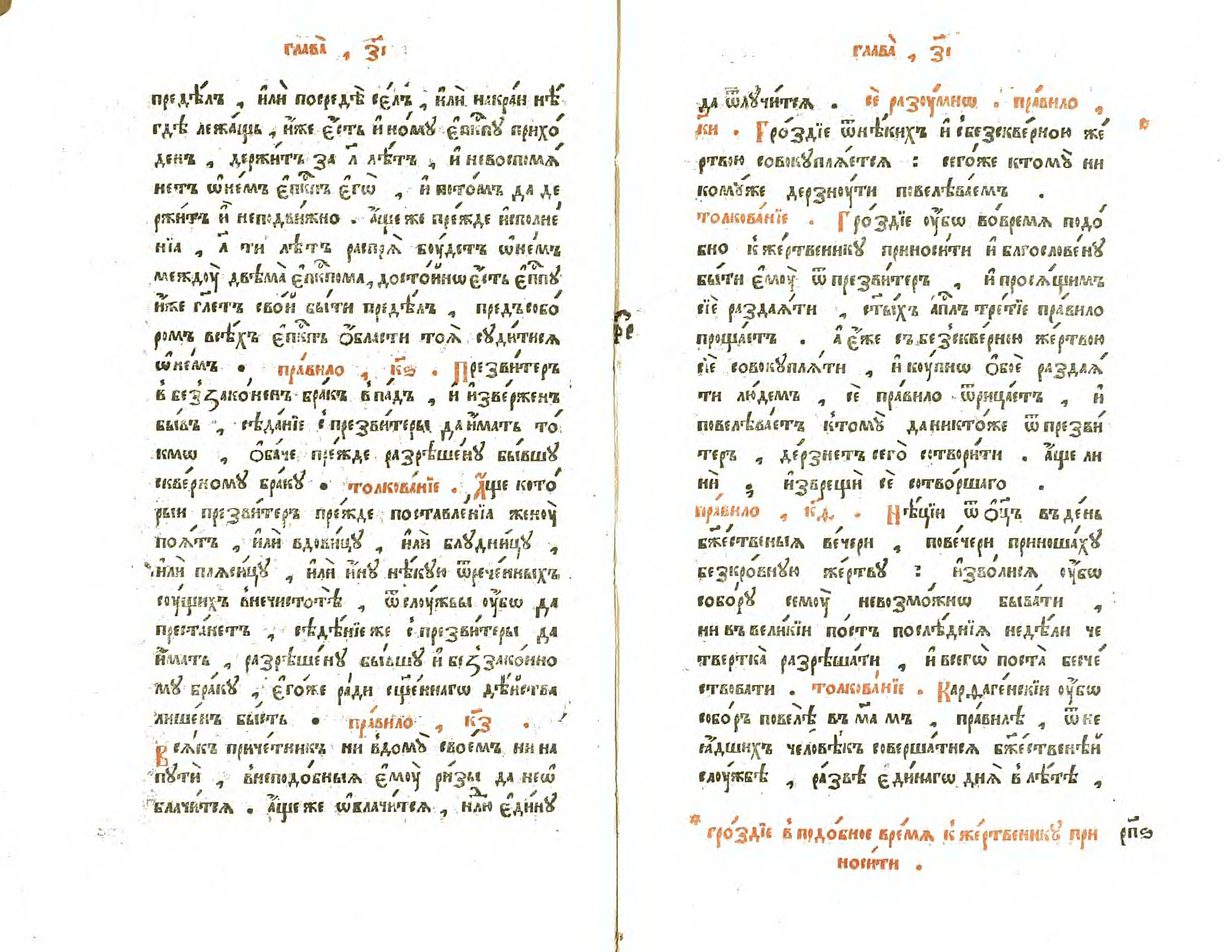 глава̀ , з҃і
предѣ́лъ , и҆лѝ посредѣ̀ се́лъ , и҆лѝ накра́и нѣ́
гдѣ̀ лежа́щь , и҆́же є҆́сть и҆но́му є҆пкⷭ҇пу прихо́
денъ , держи́тъ за л҃ лѣ́тъ , и҆невоспомѧ́
нетъ ѡ҆не́мъ є҆пкⷭ҇пъ є҆гѡ̀ , и҆ пото́мъ да де
ржи́тъ и҆̀ неподви́жно . а҆́ще же пре́жде и҆сполне́
нїа , л҃ ти лѣ́тъ распрѧ̀ бꙋ́детъ ѡ҆не́мъ
междоу̀ двѣ́ма є҆пкⷭ҇пома , досто́йнѡ є҆́сть є҆пкⷭ҇пу
и҆́же гл҃етъ сво́й бы́ти предѣ́лъ , предъсобо́
ромъ всѣ́хъ є҆пкⷭ҇пъ ѻ҆́бласти тоѧ̀ суди́тисѧ
ѡ҆не́мъ . пра́вило , к҃ѕ . Презви́теръ
в беззако́ненъ бра́къ впа́дъ , и҆ и҆зве́рженъ
бы́въ , сѣда́нїе с презви́теры да и҆́мать то́
кмѡ , ѻ҆ба́че пре́жде разрѣше́ну бы́вшу
скве́рному бра́ку . толкова́нїе . А҆́ще кото́
рыи презви́теръ пре́жде поставле́нїа женоу̀
поѧ́тъ , и҆лѝ вдови́цу , и҆лѝ блудни́цу ,
и҆лѝ плѧса́вицу , и҆лѝ и҆́ну нѣ́кую ѿрече́нныхъ
соу́щихъ внечистотѣ̀ , ѿслоу́жбы оу҆́бѡ да
преста́нетъ , сѣдѣ́нїе же с презви́теры да
и҆́мать , разрѣше́ну бы́вшу и҆ беззако́нно
му бра́ку , є҆гѡ́же ра́ди сщ҃е́ннагѡ дѣ́йства
лише́нъ бы́сть . пра́вило , к҃з .
Всѧ́къ приче́тникъ ни вдому̀ свое́мъ ни на
путѝ , внеподо́бныѧ є҆моу̀ ри́зы да неѡ҆
блачи́тсѧ . а҆́ще же ѡ҆блачи́тсѧ , н҃лю є҆ди́ну
глава̀ , з҃і
да ѿлу́читсѧ . сѐ разоумнѡ . пра́вило ,
к҃и . Гро́здїе ѿнѣ́кихъ и҆ с безскве́рною же́
ртвою совокуплѧ́етсѧ : сего́же ктому̀ ни
кому́же дерзноу́ти повелѣва́емъ .
толкова́нїе . Гро́здїе оу҆́бѡ вовре́мѧ подо́
бно к же́ртвенику приноси́ти и҆ благослове́ну
бы́ти є҆моу̀ ѿ презви́теръ , и҆ просѧ́щимъ
сїѐ раздаѧ́ти , ст҃ы́хъ а҆пⷭ҇лъ тре́тїе пра́вило
проща́етъ . а҆ є҆́же съ безскве́рною же́ртвою
сїѐ совокуплѧ́ти , и҆ коу́пнѡ ѻ҆бо́е раздаѧ́
ти лю́демъ , сѐ пра́вило ѿрица́етъ , и҆
повелѣва́етъ ктому̀ да никто́же ѿ презви́
теръ , де́рзнетъ сего̀ сотвори́ти . а҆́ще ли
нѝ , и҆зврещѝ сѐ сотво́ршаго .
пра́вило , к҃д . Нѣ́цїи ѿ ѻ҆ц҃ъ въ де́нь
бж҃е́ственыѧ ве́чери , повече́ри приноша́ху
безкро́вную же́ртву : и҆зво́лисѧ оу҆́бѡ
собо́ру семоу̀ невозмо́жнѡ быва́ти ,
ни въ вели́кїи по́стъ послѣ́днїѧ неде́ли че
твертка̀ разрѣша́ти , и҆ всегѡ̀ поста̀ бесче́
ствовати . толкова́нїе . Кардаге́нскїи оу҆́бѡ
собо́ръ повелѣ̀ въ м҃а мъ , пра́вилѣ , ѿ не
ꙗ҆́дшихъ человѣ́къ соверша́тисѧ бж҃е́ственѣй
слоу́жбѣ , ра́звѣ є҆ди́нагѡ днѧ̀ в лѣ́тѣ ,
* гро́здїе в подо́бное вре́мѧ к же́ртвенику при
носи́ти .
рп҃ѕ